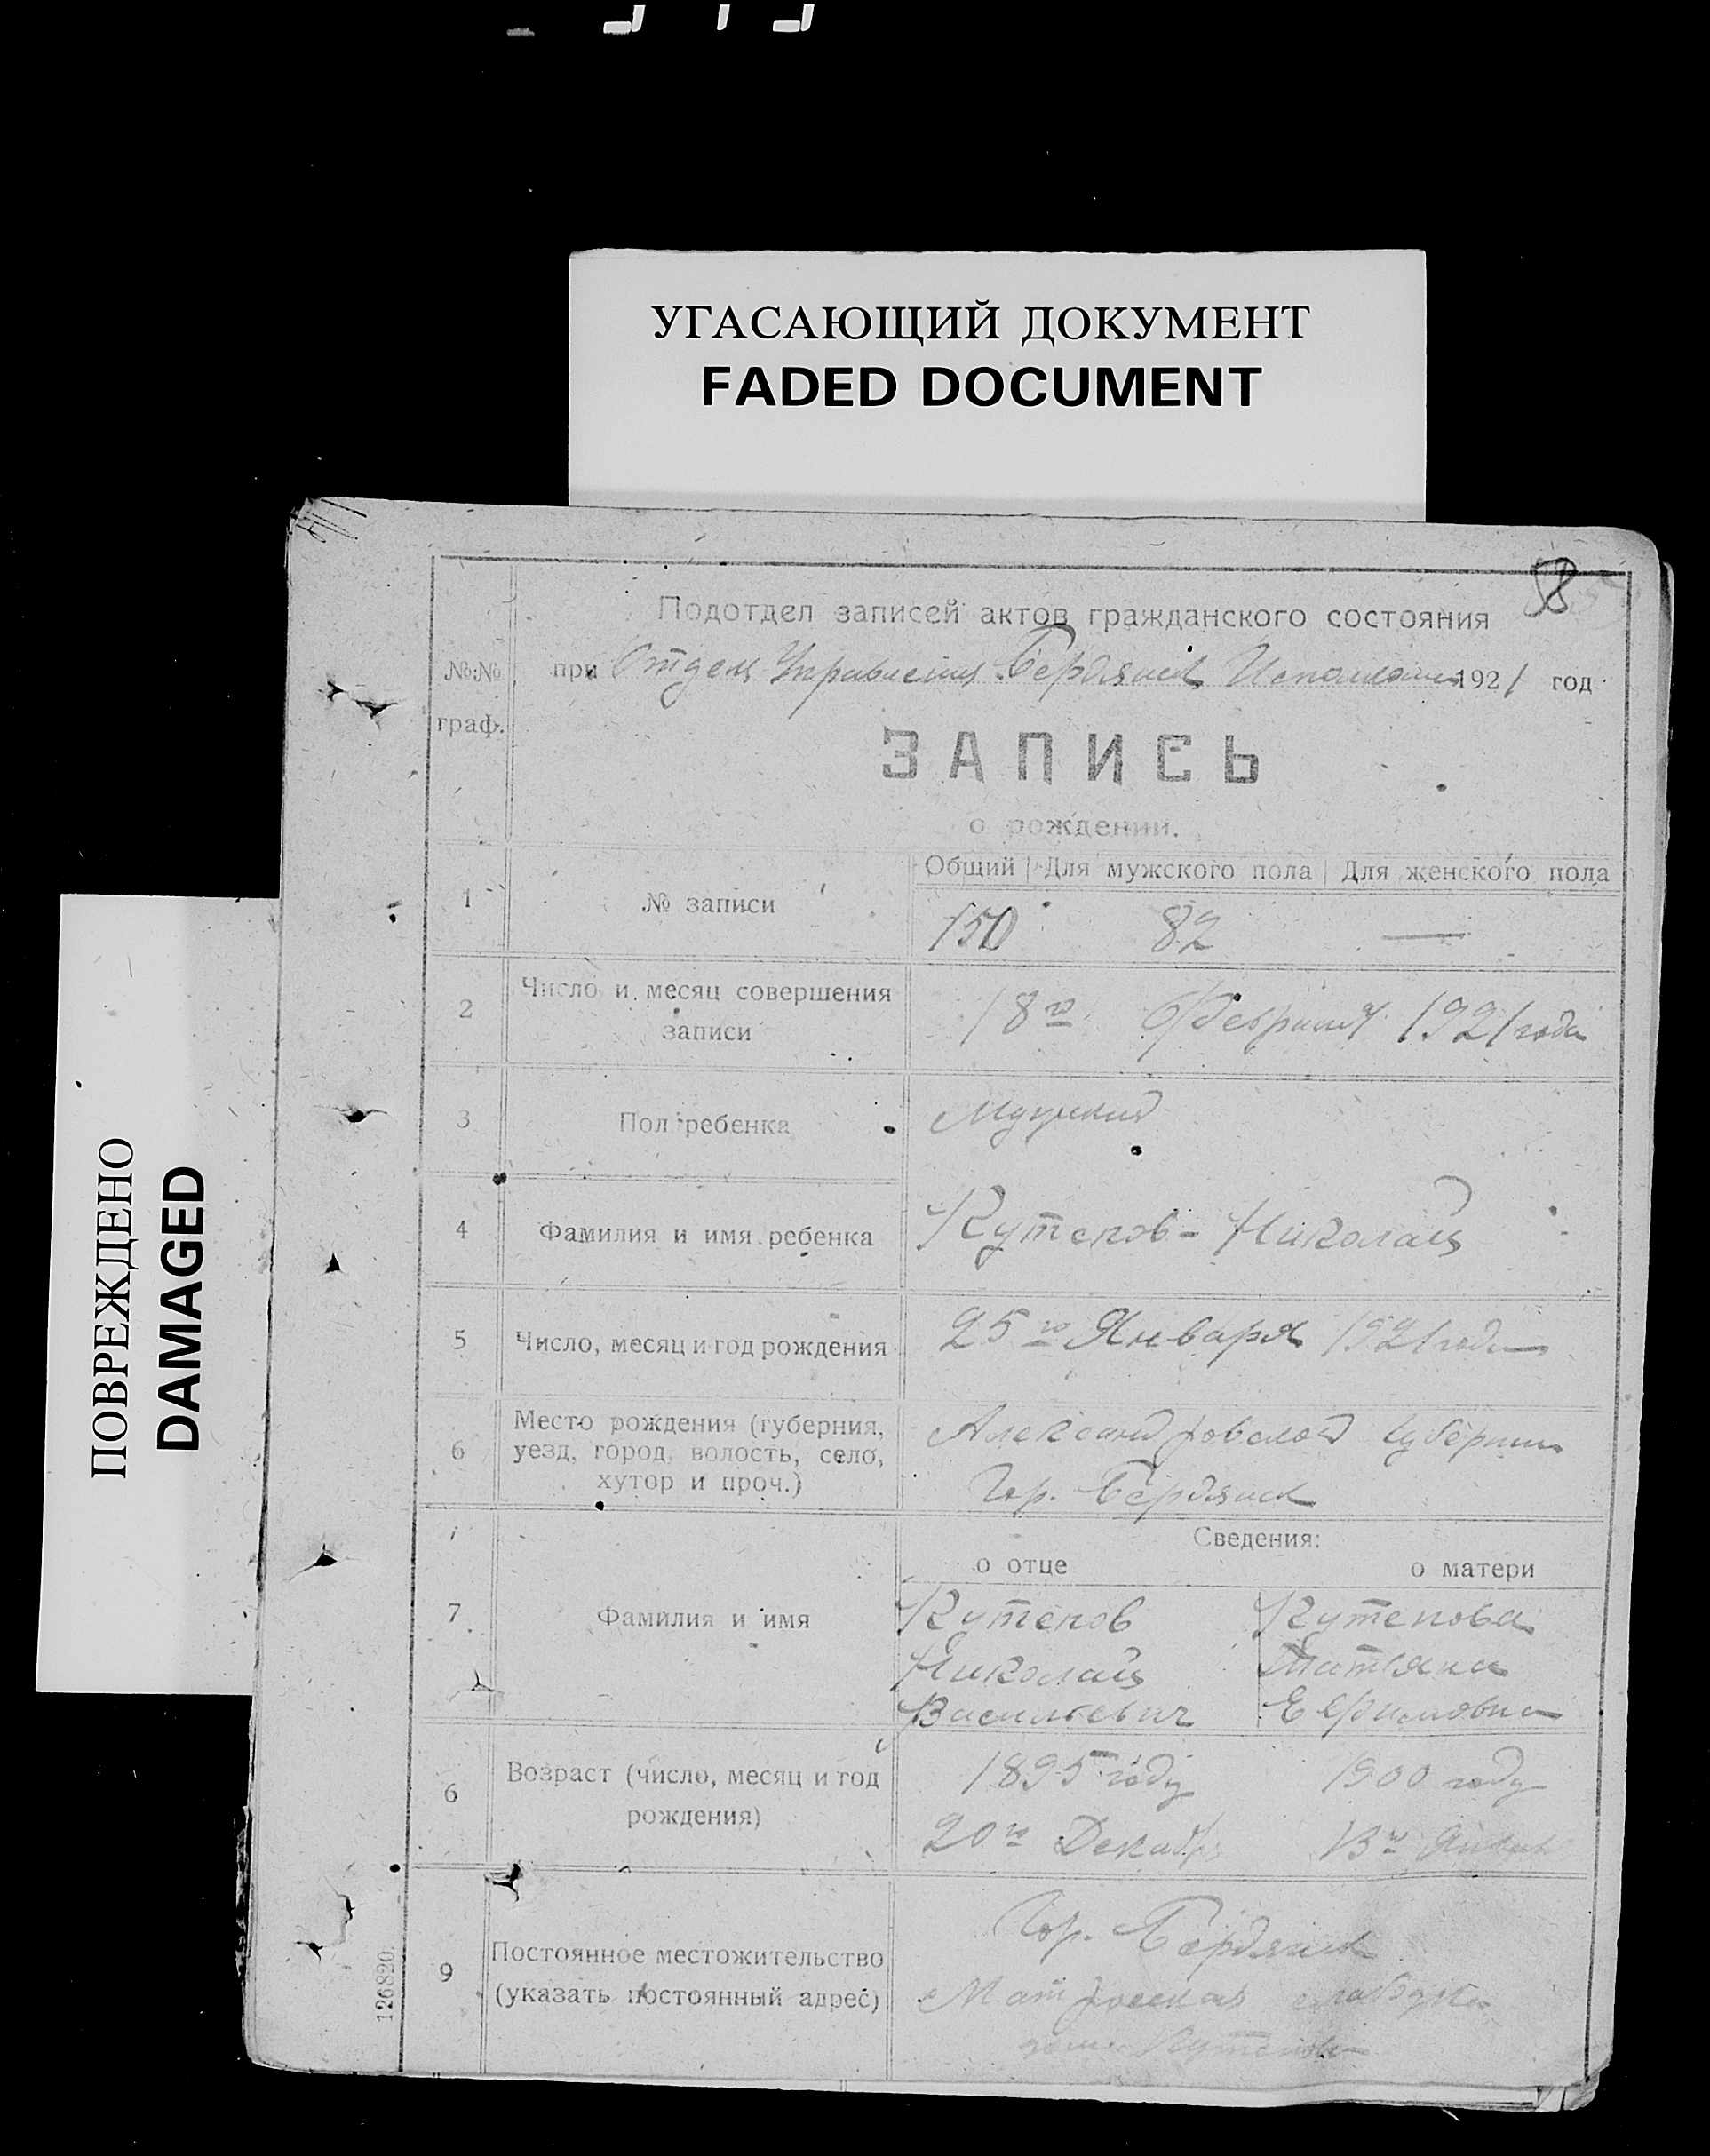 УГАСАЮЩИЙ ДОКУМЕНТ
FADED DOCUMENT
ПОВРЕЖДЕНО
DAMAGED
58
Подотдел записей актов гражданского состояния
№№ граф.
при Отделе Управления Бердянск Исполкома 1921 год
ЗАПИСЬ
о рождении.
Общий Для мужского пола Для женского пола
1 № записи 150 82 —
2 Число и месяц совершения записи 18го Февраля 1921 года
3 Пол ребенка Мужской
4 Фамилия и имя ребенка Кутепов - Николай
5 Число, месяц и год рождения 25го Января 1921 года
6 Место рождения (губерния, уезд, город, волость, село, хутор и проч.)
Александровской губернии
Гор. Бердянск
Сведения:
о отце о матери
7 Фамилия и имя
Кутепов Кутепова
Николай Татьяна
Васильевич Ефимовна
6 Возраст (число, месяц и год рождения)
1895 году 1900 году
20го Декабр 13го Январ
9 Постоянное местожительство (указать постоянный адрес)
Гор. Бердянск
Матросская слободка
дом Кутепова
126820.